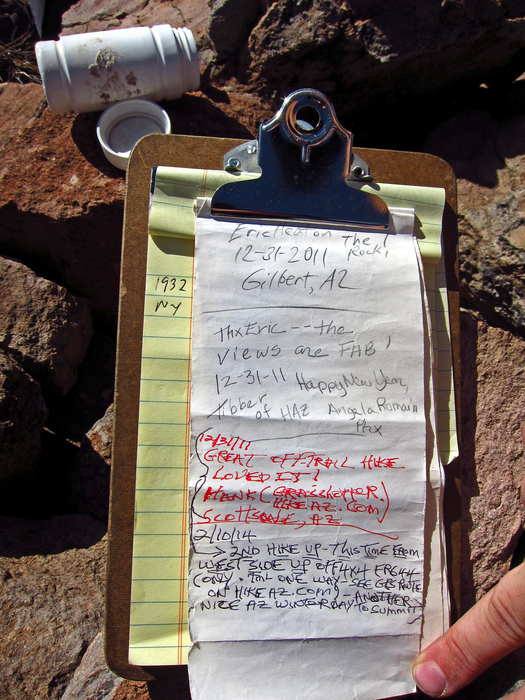 Eric Heaton The
12-31-2011 Rock!
Gilbert, AZ
1932
NY
Thx Eric -- the
views are FAB!
12-31-11 Happy New Year,
of HAZ Angela Romain
Phx
12/31/11
GREAT OFF-TRAIL HIKE
LOVED IT!
HANK (GRASSHOPPER.
HIKEAZ.COM)
SCOTTSDALE, AZ
2/10/14
→ 2ND HIKE UP - THIS TIME FROM
WEST SIDE UP OFF 4X4 FR644
(ONLY .7MI ONE WAY - SEE GPS ROUTE
ON HIKEAZ.COM) - ANOTHER
NICE AZ WINTER DAY TO SUMMIT